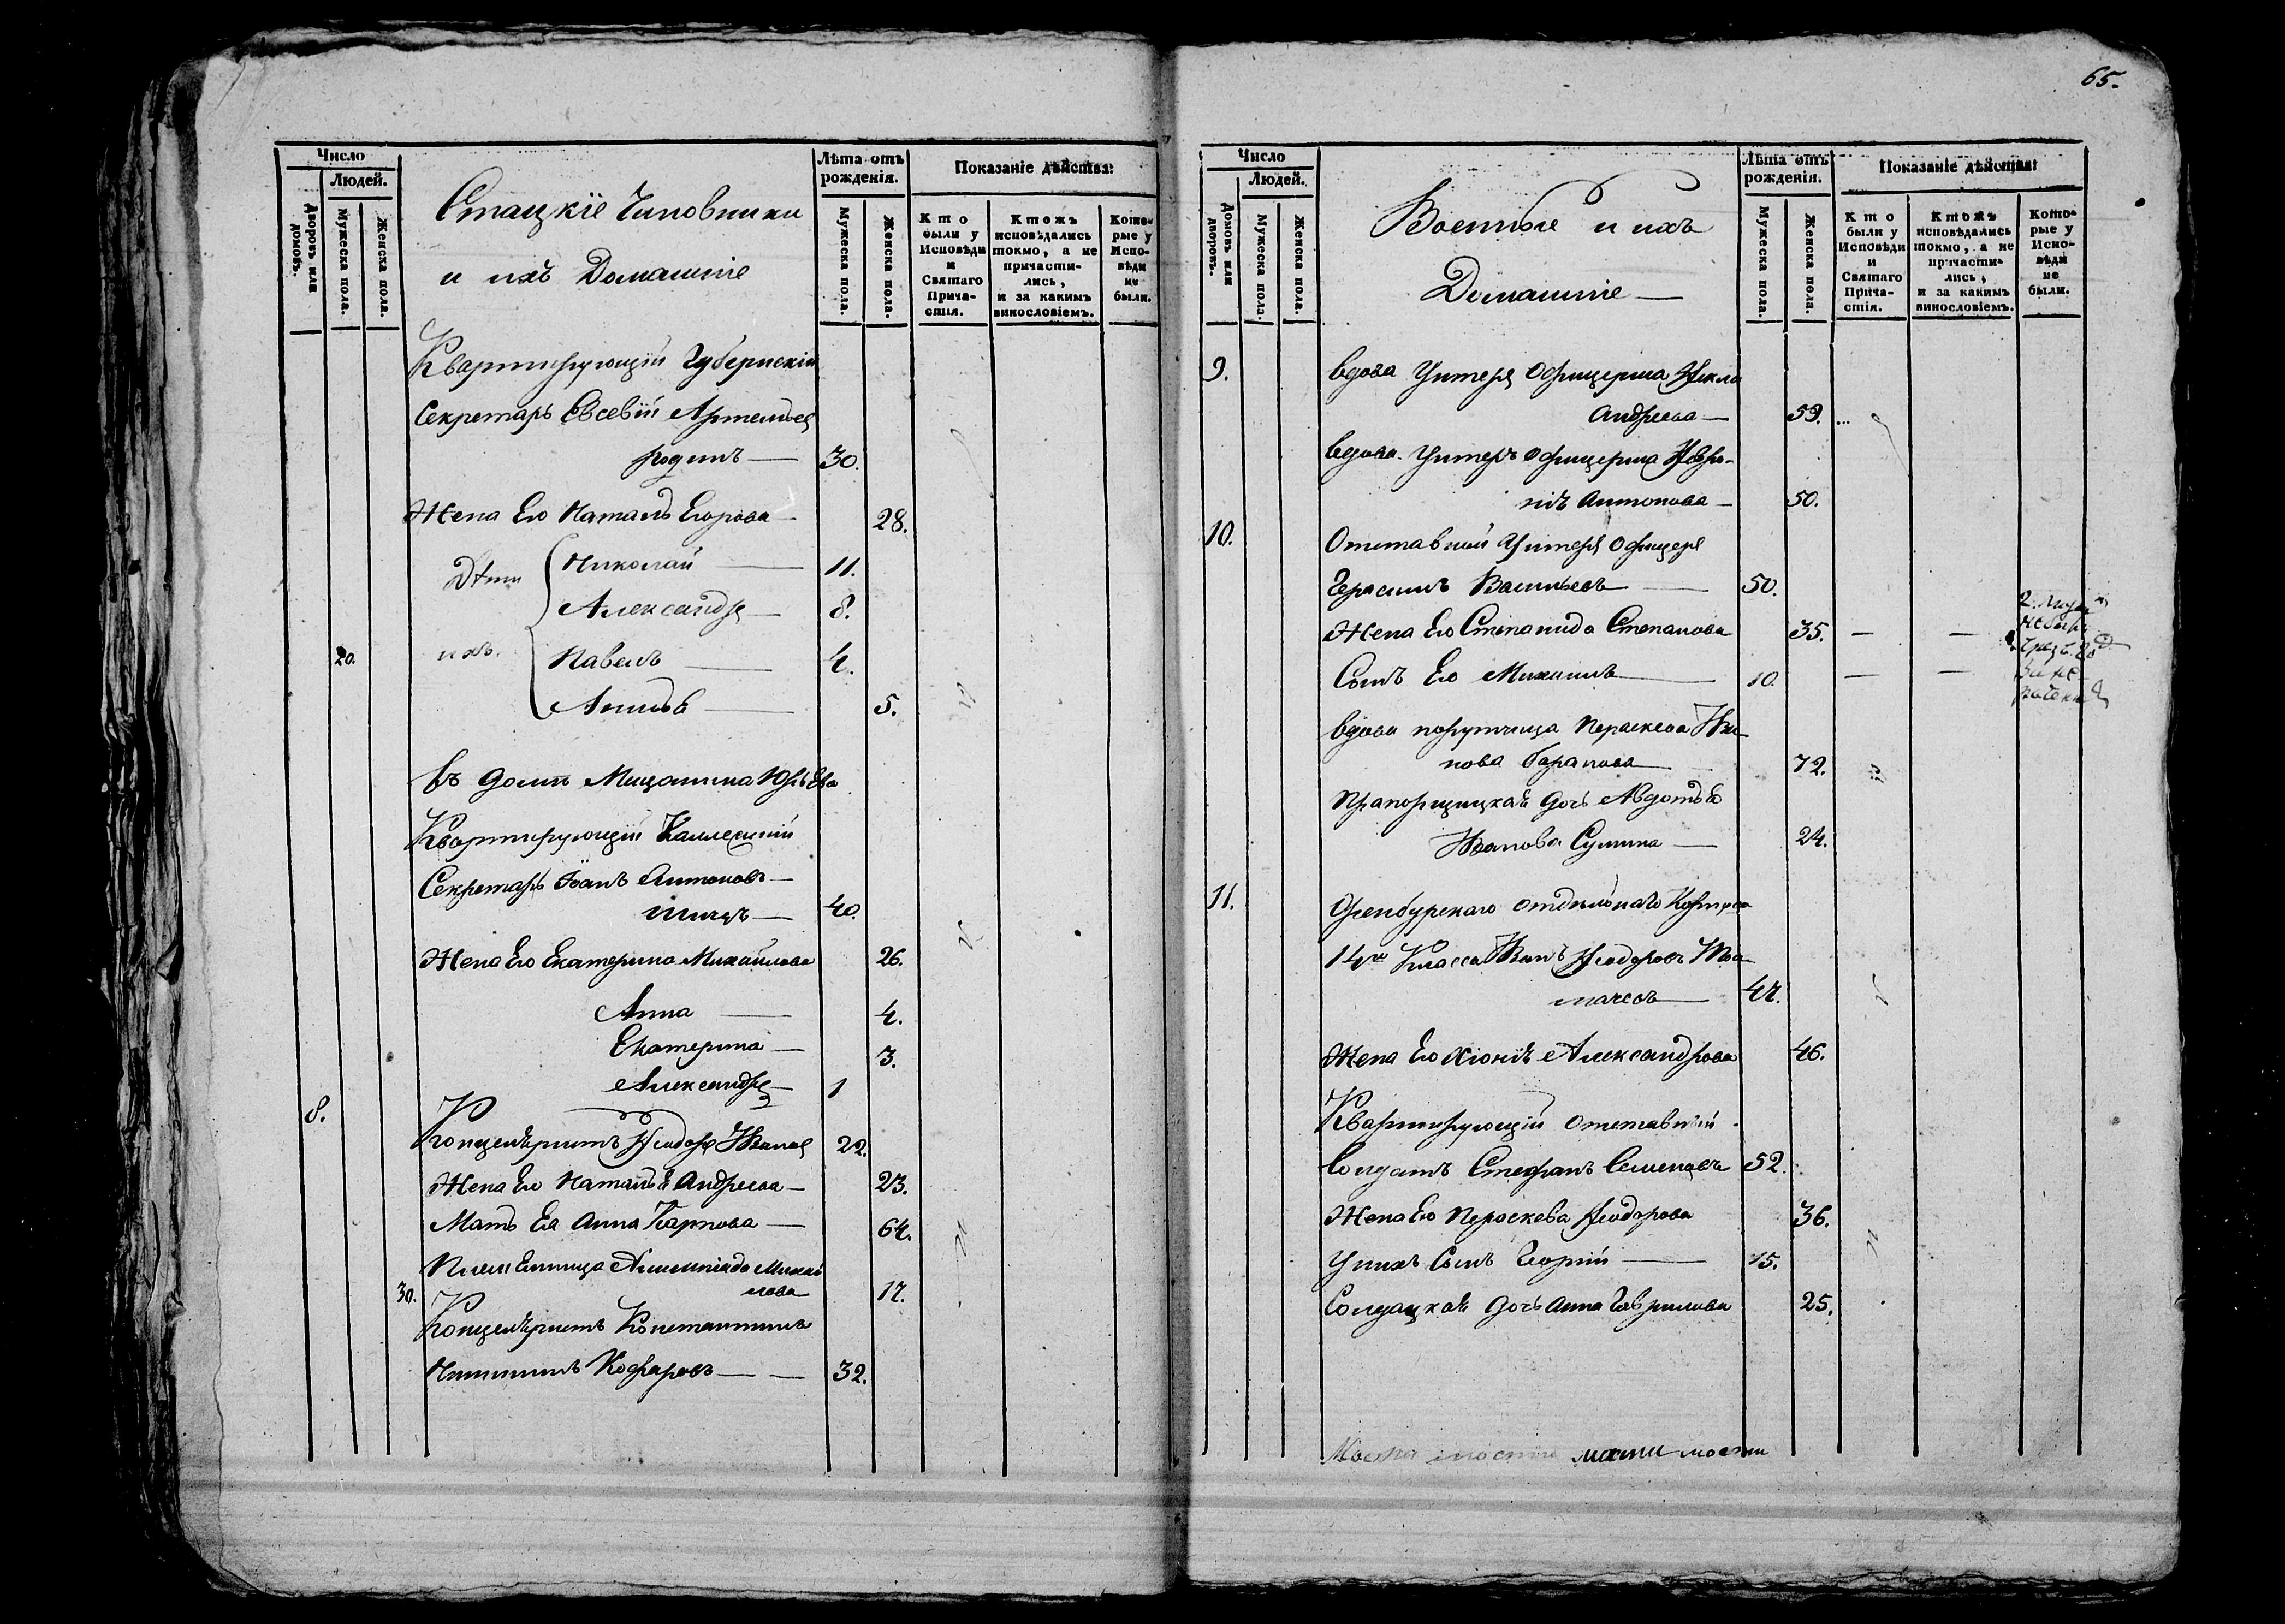 65.
Число
Людей.
Дворовъ или домовъ.
Мужеска пола.
Женска пола.
Стацкіе Чиновники
и ихъ Домашніе
Лѣта отъ рожденія.
Мужеска пола.
Женска пола.
Показаніе дѣйства:
Кто были у Исповѣди и Святаго Прича-стія.
Ктожъ исповѣдались токмо, а не причасти-лись, и за какимъ винословіемъ.
Кото-рые у Испо-вѣди не были.
Квартирующій Губернскій
Секретарь Евсевій Артемьев
родинъ — 30.
Жена Его Наталь Егорова — 28.
Дѣти Николай — 11.
Александр — 8.
20. ихъ. Павелъ — 4.
5.
въ домѣ Мищанина Юрьева
Квартирующій Коллежскій
Секретарь Іоанъ Антоновъ —
40.
Жена Его Екатерина Михайлова 26.
Анна — 4.
Екатерина — 3.
Александр — 1
8.
Концелѣристъ Ѳеодоръ Иванов 22.
Жена Его Наталья Андреева — 23.
Мать Ея Анна Карпова — 64.
Племенница Михаи
30. лова 17.
Концелѣристъ Константинъ
Никитинъ — — 32.
Число
Людей.
Домовъ или дворовъ.
Мужеска пола.
Женска пола.
Военные и ихъ
Домашніе —
Лѣта отъ рожденія.
Мужеска пола.
Женска пола.
Показаніе дѣйства:
Кто были у Исповѣди и Святаго Прича-стія.
Ктожъ исповѣдались токмо, а не причасти-лись, и за какимъ винословіемъ.
Кото-рые у Испо-вѣди не были.
9. вдова Унтеръ Офицерша Ѳекла
Андреева — 59.
вдова Унтеръ Офицерша Ѳевро-
нія Антонова — 50.
10. Отставной Унтеръ Офицеръ
Герасимъ Васильевъ — 50.
Жена Его Степанида Степанова 35. — —
Сынъ Его Михаилъ — 10. — —
вдова порутчица Пераскева Ива-
нова Баранова — 72.
Прапорщицкая дочь Авдотья
Иванова Сумина — 24.
11. Оренбурскаго отдѣльнаго Корпуса
14го Класса Иванъ Ѳеодоровъ
47.
Жена Его Хіонія Александрова 46.
Квартирующій отставній
Солдатъ Стефанъ Семеновъ 52.
Жена Его Пераскева Ѳеодорова 36.
У нихъ Сынъ Георгій — 15.
Солдацкая дочь Анна Гаврилова 25.